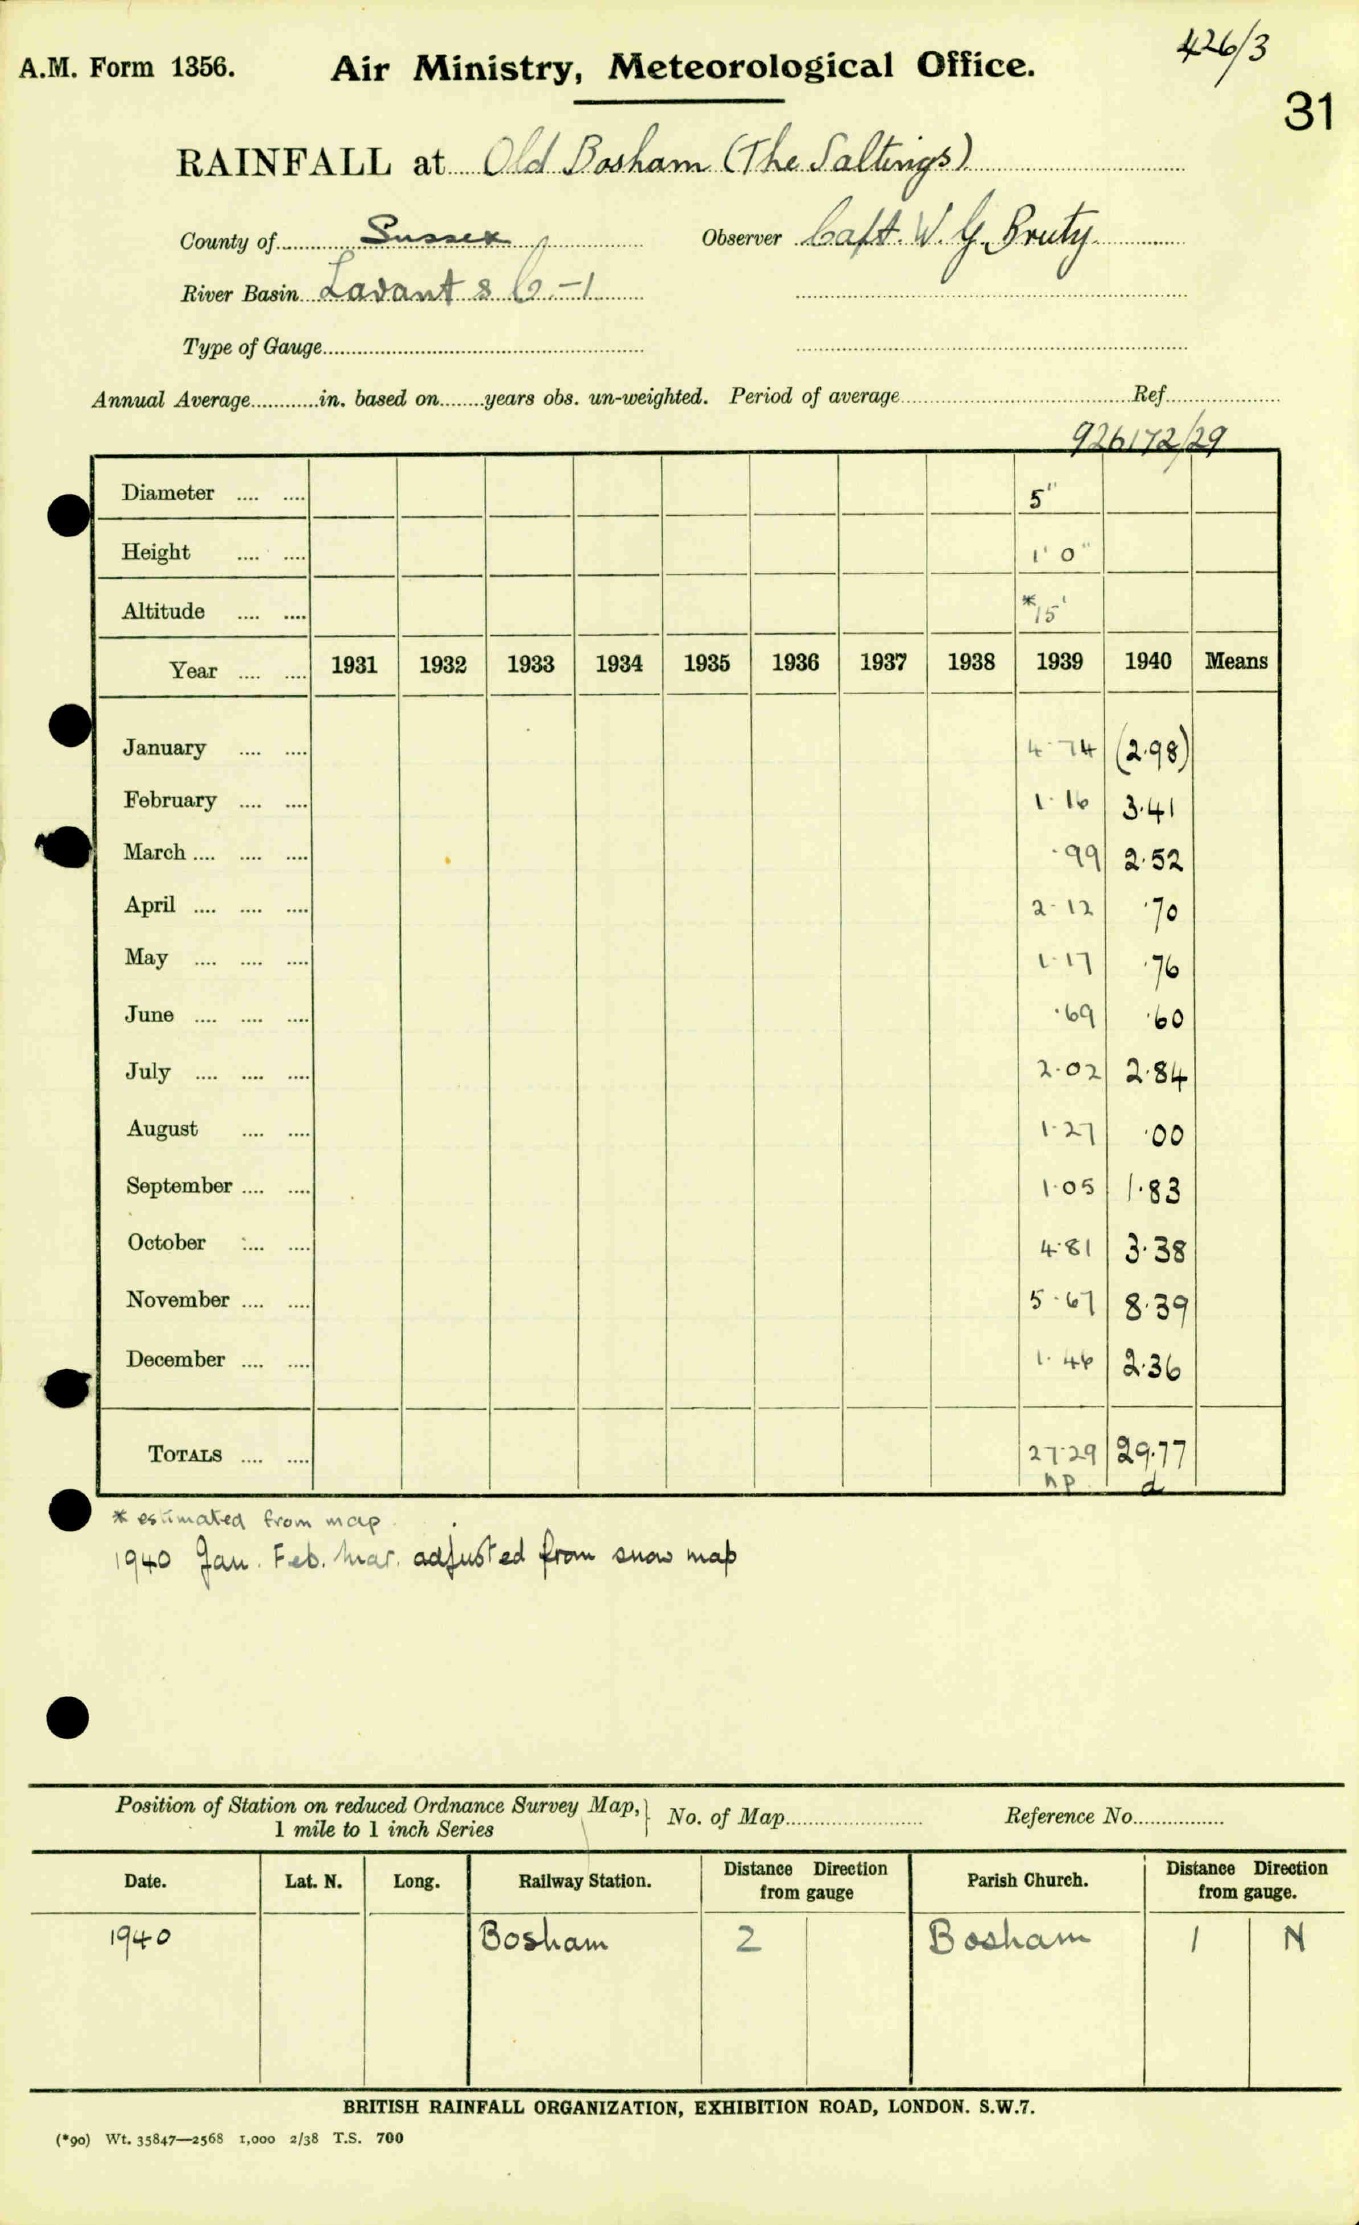 426/3
A.M. Form 1356. Air Ministry, Meteorological Office.
31
RAINFALL at Old Bosham (The Saltings)
County of Sussex Observer Capt. W. G. Bruty
River Basin Lavant & C.-1
Type of Gauge
Annual Average in. based on years obs. un-weighted. Period of average Ref.
926172/29
Diameter .... .... 5"
Height .... .... 1' 0"
Altitude .... .... *15'
Year .... .... 1931 1932 1933 1934 1935 1936 1937 1938 1939 1940 Means
January .... .... 4.74 (2.98)
February .... .... 1.16 3.41
March .... .... .... .99 2.52
April .... .... .... 2.12 .70
May .... .... .... 1.17 .76
June .... .... .... .69 .60
July .... .... .... 2.02 2.84
August .... .... 1.27 .00
September .... .... 1.05 1.83
October .... .... 4.81 3.38
November .... .... 5.67 8.39
December .... .... 1.46 2.36
TOTALS .... .... 27.29 29.77
np d
* estimated from map.
1940 Jan. Feb. Mar. adjusted from snow map
Position of Station on reduced Ordnance Survey Map, } No. of Map Reference No.
1 mile to 1 inch Series
Date. Lat. N. Long. Railway Station. Distance Direction from gauge Parish Church. Distance Direction from gauge.
1940 Bosham 2 Bosham 1 N
BRITISH RAINFALL ORGANIZATION, EXHIBITION ROAD, LONDON. S.W.7.
(*90) Wt. 35847—2568 1,000 2/38 T.S. 700